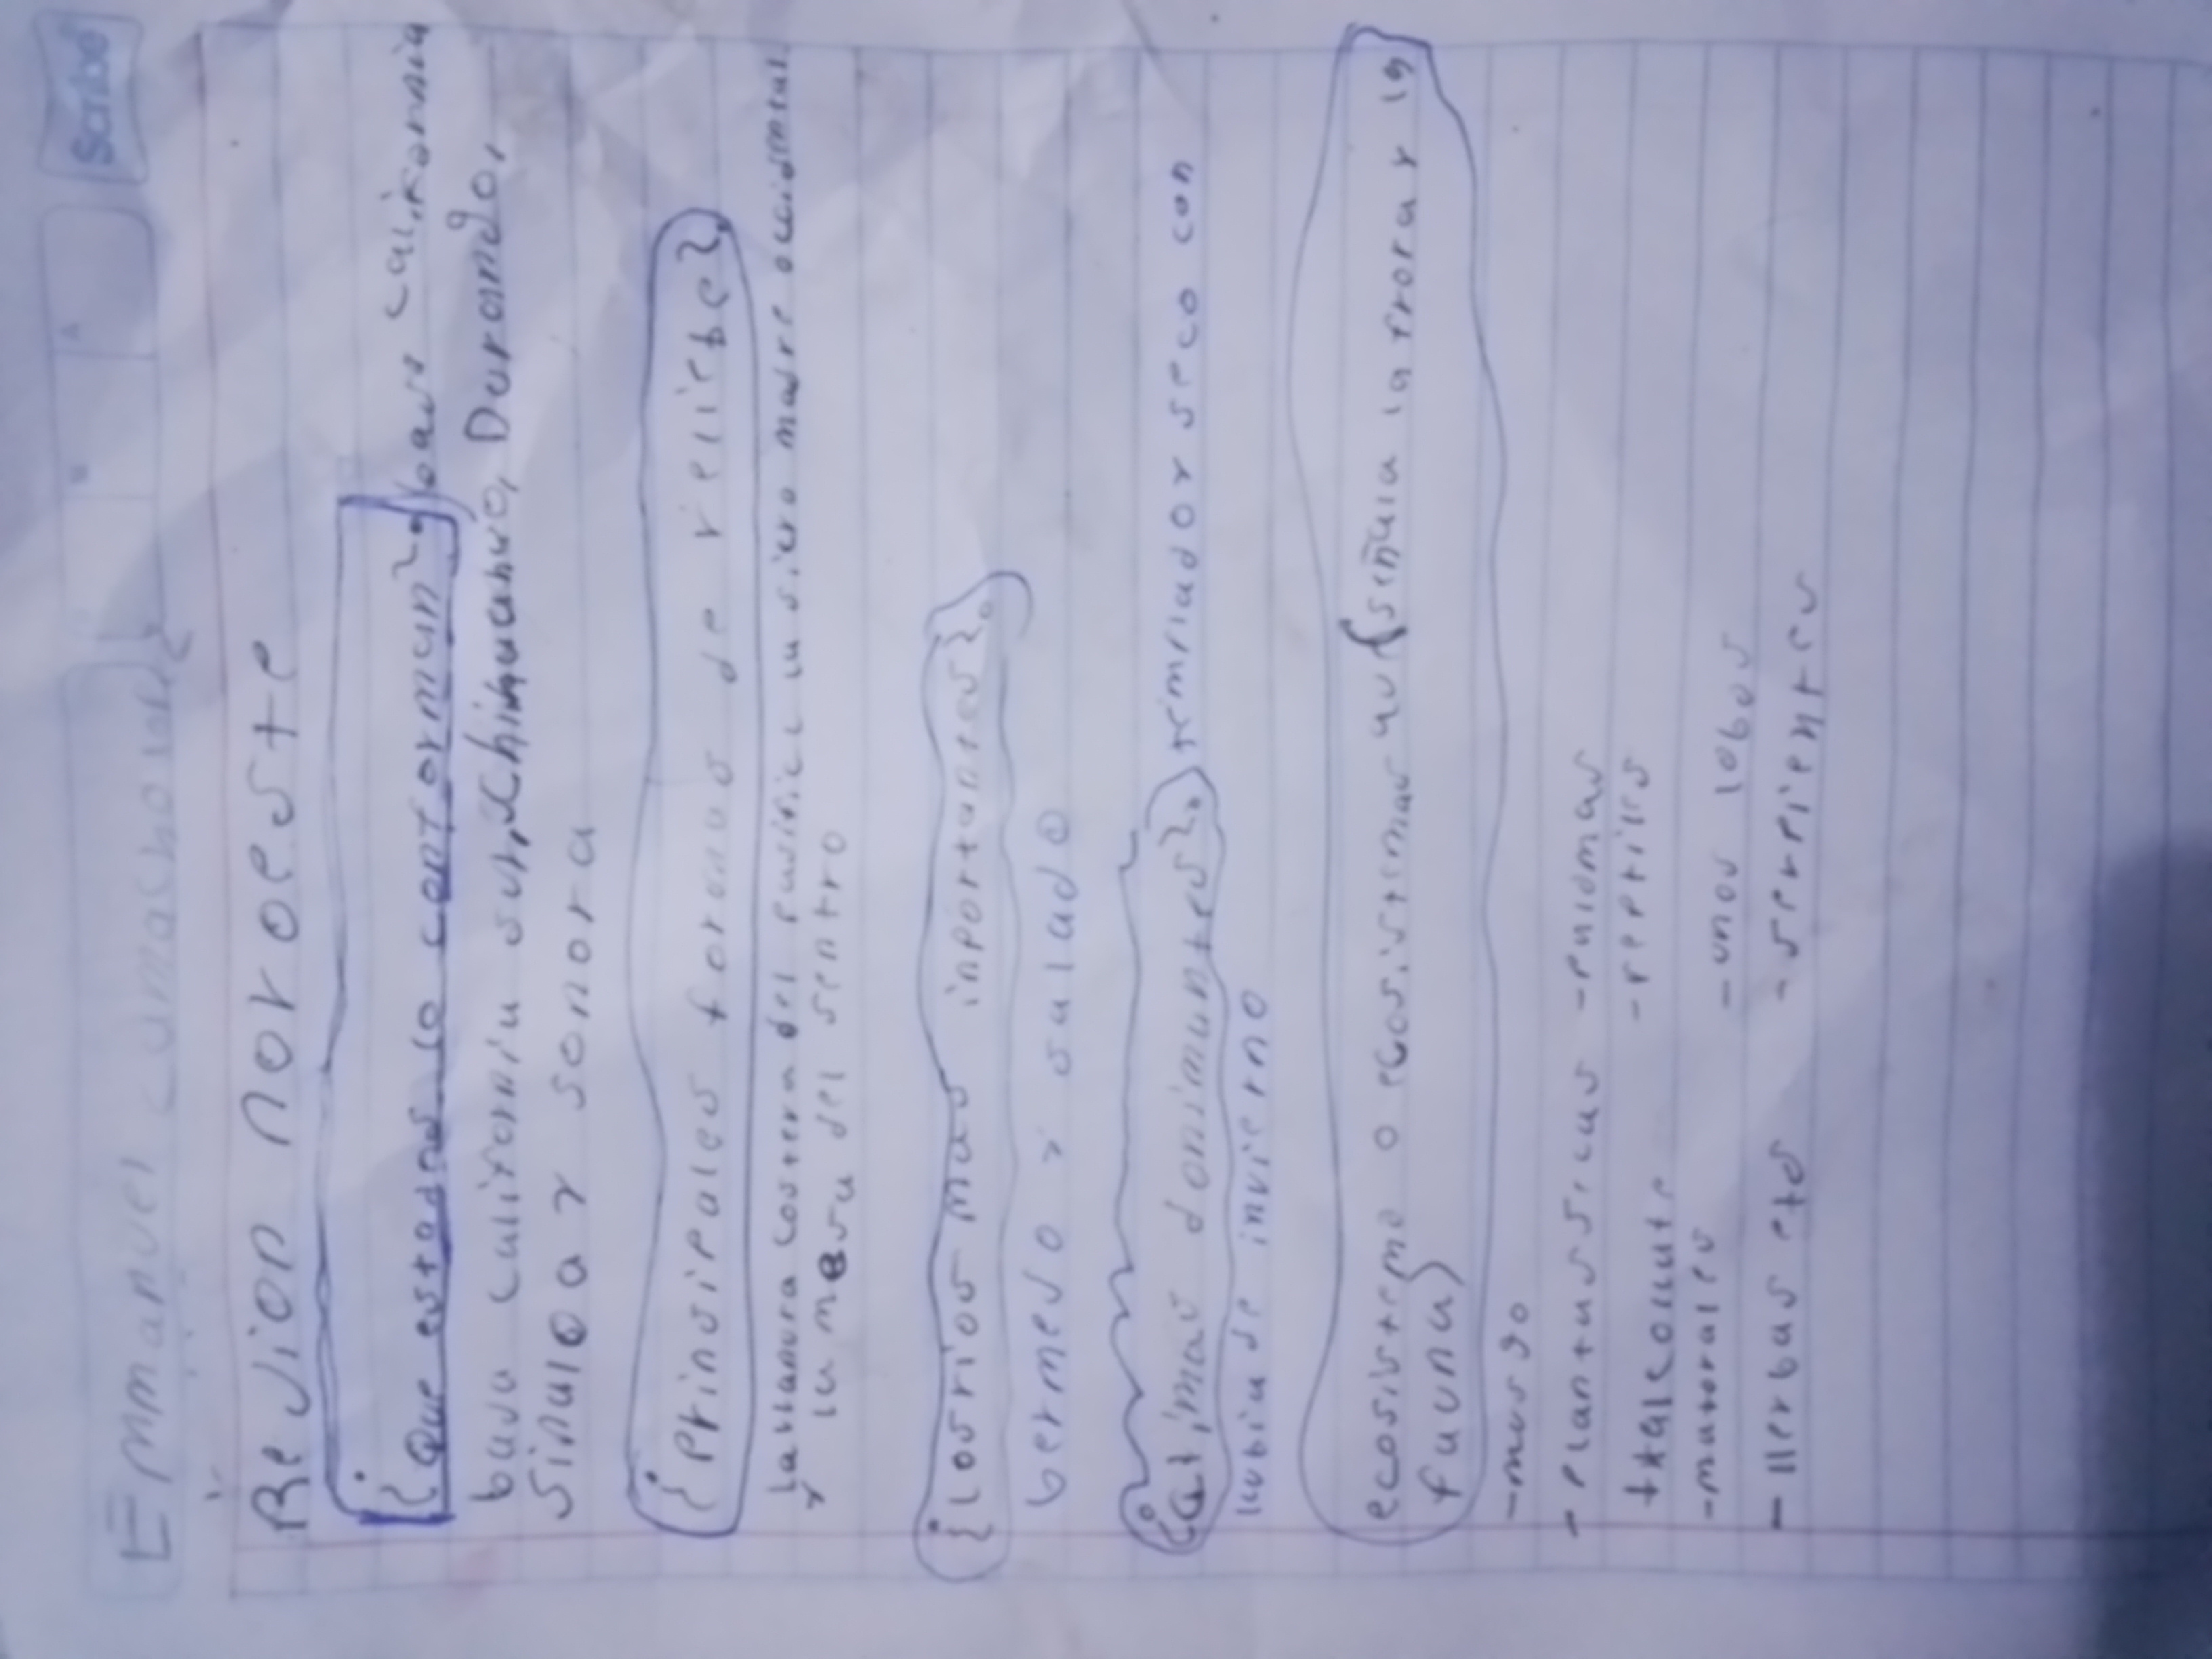 Scribe
Emmanuel camacho
Rejion noroeste
¿Que estados lo conforman? baja california
baja california sur, Chihuahua, Durango,
Sinaloa y sonora
¿Prinsipales formas de reliebe?
la llanura costera del pasifico la siera madre occidental
y la mesa del sentro
¿los rios mas inportantes?
bermejo y salado
¿climas dominantes? temrlador seco con
llubia de invierno
ecosistema o ecosistemas (señala la frora y la
fauna)
-musgo
-plantas sicas -palomas
-reptiles
-matorales -unos lobos
-llerbas etc -serpientes